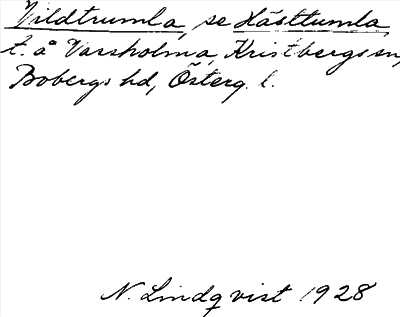 Vildtrumla, se Hästtumla
t. å Varsholma, Kristbergs sn,
Bobergs hd, Österg. l.
N. Lindqvist 1928